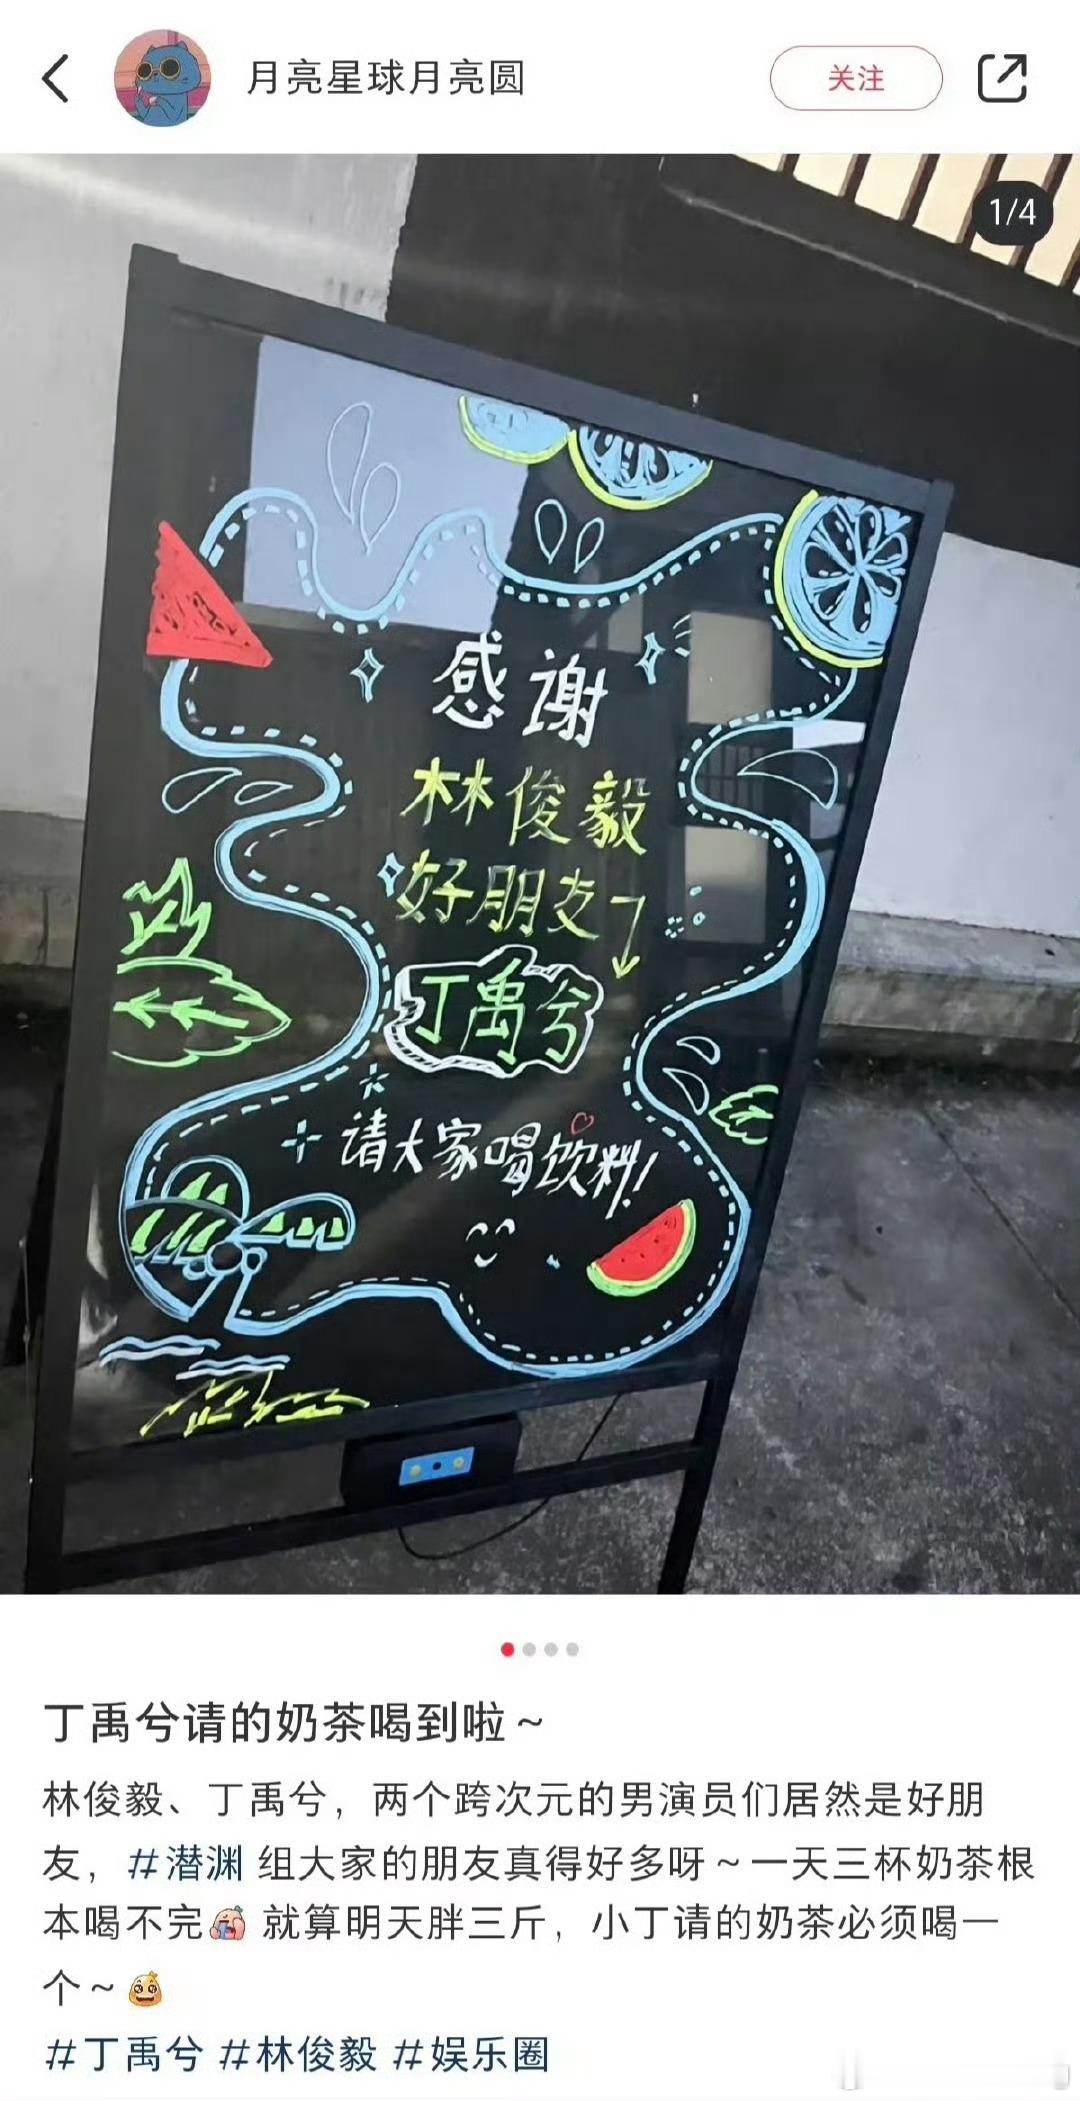 月亮星球月亮圆
关注
1/4
感谢
林俊毅
好朋友
丁禹兮
请大家喝饮料!
丁禹兮请的奶茶喝到啦~
林俊毅、丁禹兮，两个跨次元的男演员们居然是好朋
友，#潜渊 组大家的朋友真得好多呀~一天三杯奶茶根
本喝不完 就算明天胖三斤，小丁请的奶茶必须喝一
个~
#丁禹兮 #林俊毅 #娱乐圈